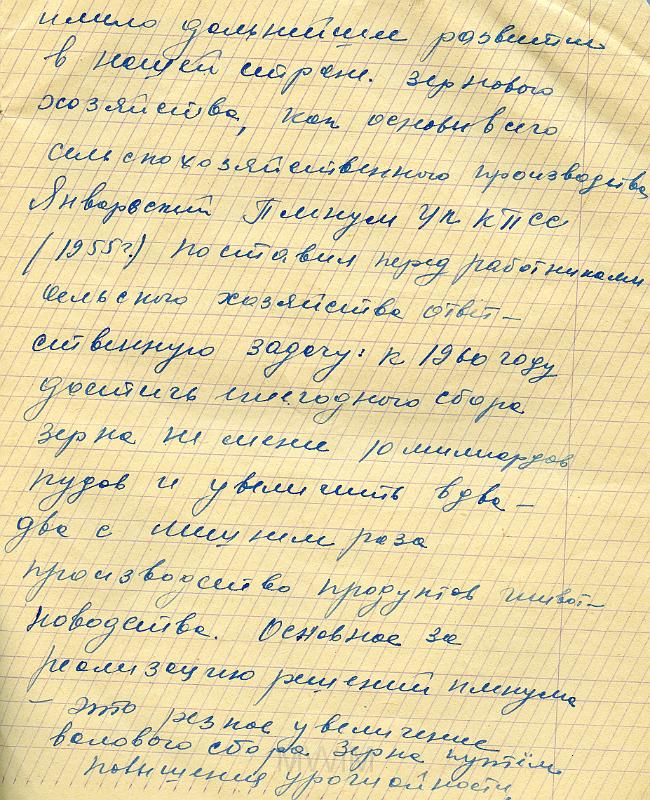 имело дальнейшем развитии
в нашей стране. зернового
хозяйства, как основы всего
сельскохозяйственного производства
Январский Пленум ЦК КПСС
(1955г.) поставил перед работниками
сельского хозяйства ответ-
ственную задачу: к 1960 году
достичь ежегодного сбора
зерна не менее 10 миллиардов
пудов и увеличить в два-
два с лишним раза
производство продуктов живот-
новодства. Основное за
реализацию решений пленума
- это резкое увеличение
валового сбора зерна путём
повышения урожайности.